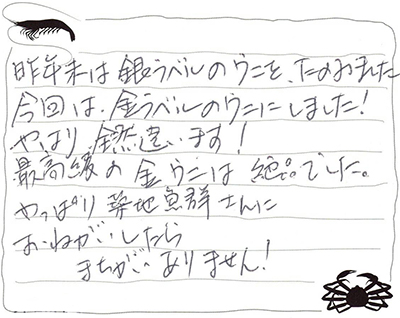 昨年末は銀ラベルのウニを、たのみました
今回は、金ラベルのウニにしました!
やはり、全然違います!
最高級の金ウニは絶品でした。
やっぱり築地魚群さんに
おねがいしたら
まちがいありません!